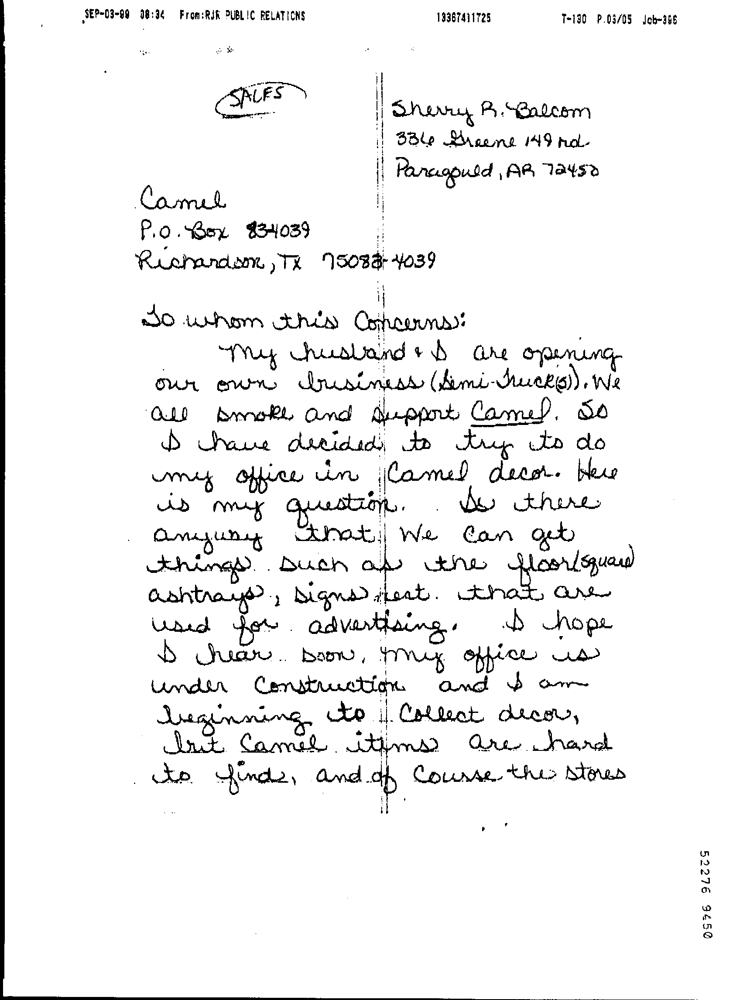 SEP-03-99 08:34 From:RJR PUBLIC RELATIONS 13367411725 T-130 P.03/05 Job-366
SALES
Sherry R. Balcom
336 Greene 149 rd.
Paragould, AR 72450
Camel
P.O. Box 834039
Richardson, TX 75083-4039
To whom this Concerns:
My husband & I are opening
our own business (Semi-Truck(s)). We
all smoke and support Camel. So
I have decided to try to do
my office in Camel decor. Here
is my question. Is there
anyway that We Can get
things such as the floor(square)
ashtrays, signs, ect. that are
used for advertising. I hope
I hear soon, my office is
under Construction and I am
beginning to Collect decor,
but Camel items are hard
to find, and of Course the stores
52276 9450